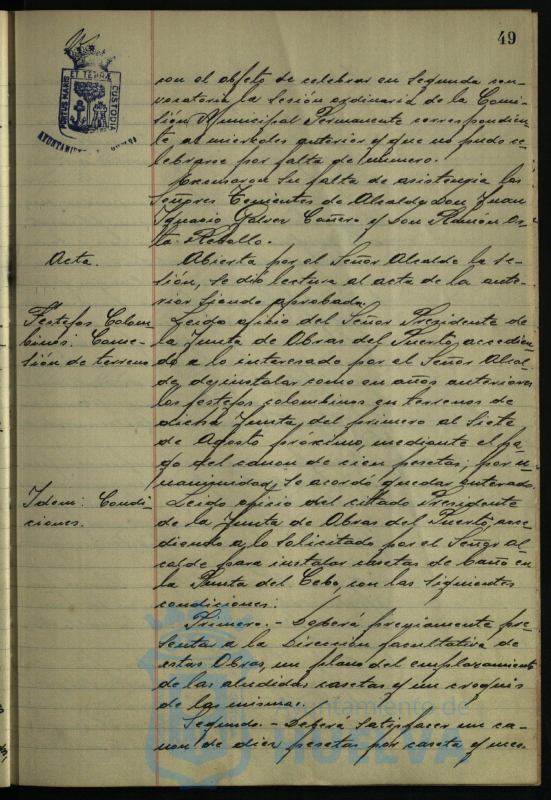 49
PORTUS MARIS ET TERRAE CUSTODIA
AYUNTAMIENTO HUELVA
con el objeto de celebrar en segunda con-
vocatoria la sesión ordinaria de la Comi-
sión Municipal Permanente correspondien-
te al miercoles anterior y que no pudo ce-
lebrarse por falta de número.
Excusaron su falta de asistencia los
Señores Tenientes de Alcalde Don Juan
Ignacio Galvez Cañero y Don Ramón
Rebollo.
Acta.
Abierta por el Señor Alcalde la se-
sión, se dio lectura al acta de la ante-
rior siendo aprobada.
Festejos Colom-
binos: Conce-
sión de terreno
Leido oficio del Señor Presidente de
la Junta de Obras del Puerto, accedien
do a lo interesado por el Señor Alcal-
de, de instalar como en años anteriores
los festejos colombinos en terrenos de
dicha Junta, del primero al siete
de Agosto próximo, mediante el pa-
go del canon de cien pesetas; por u-
nanimidad, se acordó quedar enterado.
Idem: Condi-
ciones.
Leido oficio del citado Presidente
de la Junta de Obras del Puerto, acce
diendo a lo solicitado por el Señor Al-
calde para instalar casetas de baño en
la Punta del Cebo, con las siguientes
condiciones:
Primero.- Deberá previamente pre-
sentar a la Dirección facultativa de
estas Obras, un plano del emplazamiento
de las aludidas casetas y un croquis
de las mismas.
Segundo.- Deberá satisfacer un ca-
non de diez pesetas por caseta y mes.
Ayuntamiento de
HUELVA